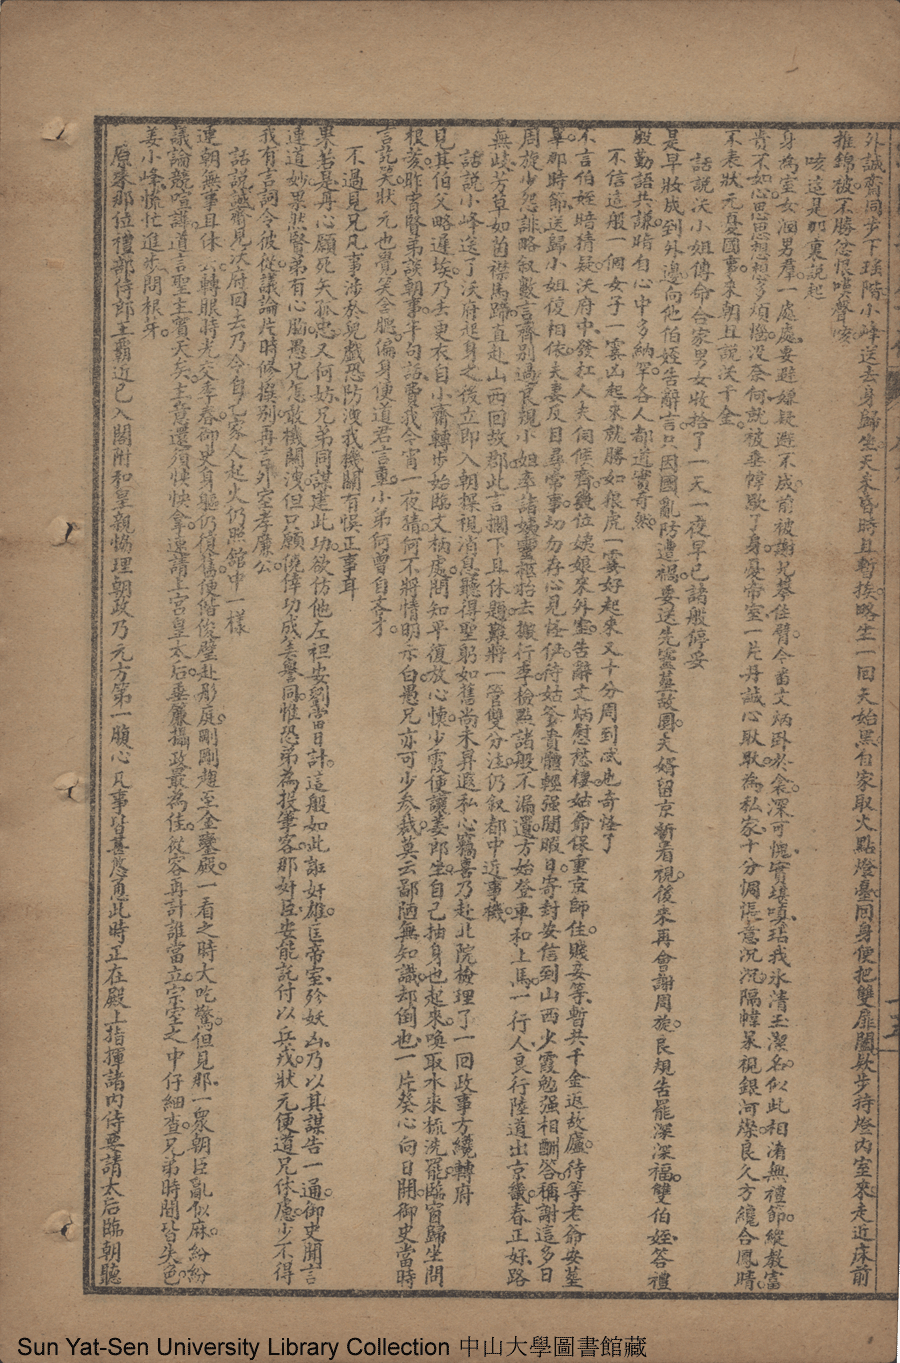 外誠齋同步下瑤階小峰送去身歸坐天未昏時且暫挨略坐一回天始黑自家取火點燈臺回身便把雙扉闔欵步持燈內室來走近床前
推錦被不勝忿恨嘆聲咳
咳這是那裏說起
身為室女溷男羣一處處要避嫌疑避不成前被樹兄攀住臂今番文炳臥於衾深可愧實堪嗔玷我氷清玉潔名似此相淆無禮節縱教富
貴不如心思思想想多煩惱沒奈何就被垂幃歇了身憂帝室一片丹誠心耿耿為私家十分惆悵意沉沉隔幃呆視銀河燦良久方纔合鳳睛
不表狀元憂國事來朝且說沃千金
話說沃小姐傳命合家男女收拾了一天一夜早已諸般停妥
是早妝成到外邊向他伯姪告辭言只因國亂防遭禍要送先靈葬故園夫婿留京暫看視後來再會謝周旋良規告罷深深福雙伯姪答禮
殷勤語共謙暗自心中多納罕各人都道實奇然
不信這般一個女子一霎凶起來就勝如狼虎一霎好起來又十分周到忒也奇怪了
不言伯姪暗猜疑沃府中發紅人夫伺候齊幾位姨娘來外室告辭文炳慰愁悽姑爺保重京師住賤妾等暫共千金返故廬待等老爺安葬
畢那時節送歸小姐復相依夫妻反目尋常事切勿存心見怪伊侍姑爺貴體輕强閒暇日寄封安信到山西少霞勉强相酬答稱謝這多日
周旋少怨誹略叙數言齊別過良規小姐率諸姨靈柩抬去搬行李檢點諸般不漏遺方始登車和上馬一行人衆行陸道出京畿春正好路
無歧芳草如茵襯馬蹄直赴山西回故郡此言擱下且休題難將一管雙分注仍叙都中近事機
話說小峰送了沃府起身之後立即入朝探視消息聽得聖躬如舊尚未昇遐私心竊喜乃赴北院檢理了一回政事方纔轉府
見其伯父略遲埃乃去更衣自小齋轉步始臨文炳處問知平復放心懷少霞便讓姜郎坐自己抽身也起來喚取水來梳洗罷臨窗歸坐問
根荄昨宵賢弟談朝事半句話費我今宵一夜猜何不將情明示白愚兄亦可少參裁莫云鄙陋無知識却倒也一片葵心向日開御史當時
言訖笑狀元也覺笑含腮偏身便道君言重小弟何曾自吝才
不過見兄凡事涉於兒戲恐防洩我機關有悞正事耳
果若是丹心願死矢孤忠又何妨兄弟同謀建此功欲仿他左袒安劉當日計這般如此誑奸雄匡帝室殄妖凶乃以其謀告一通御史聞言
連道妙果然賢弟有心胸愚兄怎敢機關洩但只願僥倖功成美譽同惟恐弟為投筆客那奸臣安能託付以兵戎狀元便道兄休慮少不得
我有言詞令彼從議論片時修撰別再言外室孝廉公
話說誠齋見沃府回去乃令自己家人起火仍照舘中一樣
連朝無事且休云轉眼時光交季春御史身軀仍復舊便偕俊璧赴彤庭剛剛趨至金鑾殿一看之時大吃驚但見那一衆朝臣亂似麻紛紛
議論競喧譁道言聖主賓天矣主意還須怏怏拿速請上宮皇太后垂簾攝政最為佳從容再計誰當立宗室之中仔細查兄弟時間皆失色
姜小峰慌忙進步問根牙
原來那位禮部侍郎王霸近已入閣附和皇親協理朝政乃元方第一腹心凡事皆其慫恿此時正在殿上指揮諸內侍要請太后臨朝聽
Sun Yat-Sen University Library Collection 中山大學圖書館藏